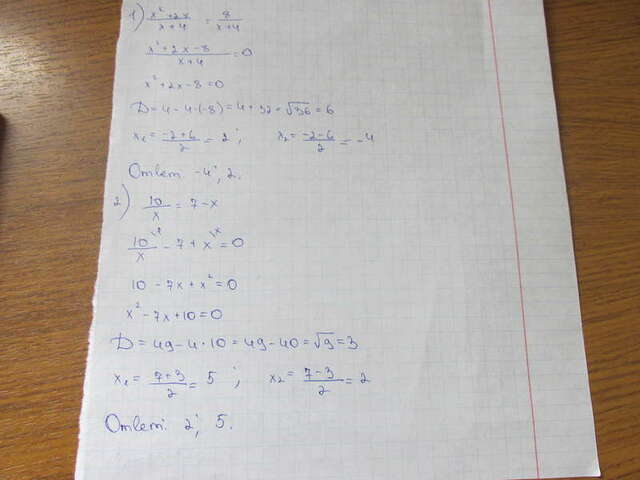 1) (x²+2x)/(x+4) = 8/(x+4)
(x²+2x-8)/(x+4) = 0
x²+2x-8=0
D=4-4·(-8)=4+32=√36=6
x₁=(-2+6)/2=2; x₂=(-2-6)/2=-4
Ответ: -4; 2.
2) 10/x = 7-x
10/x - 7 + x = 0
10-7x+x²=0
x²-7x+10=0
D=49-4·10=49-40=√9=3
x₁=(7+3)/2=5; x₂=(7-3)/2=2
Ответ: 2; 5.